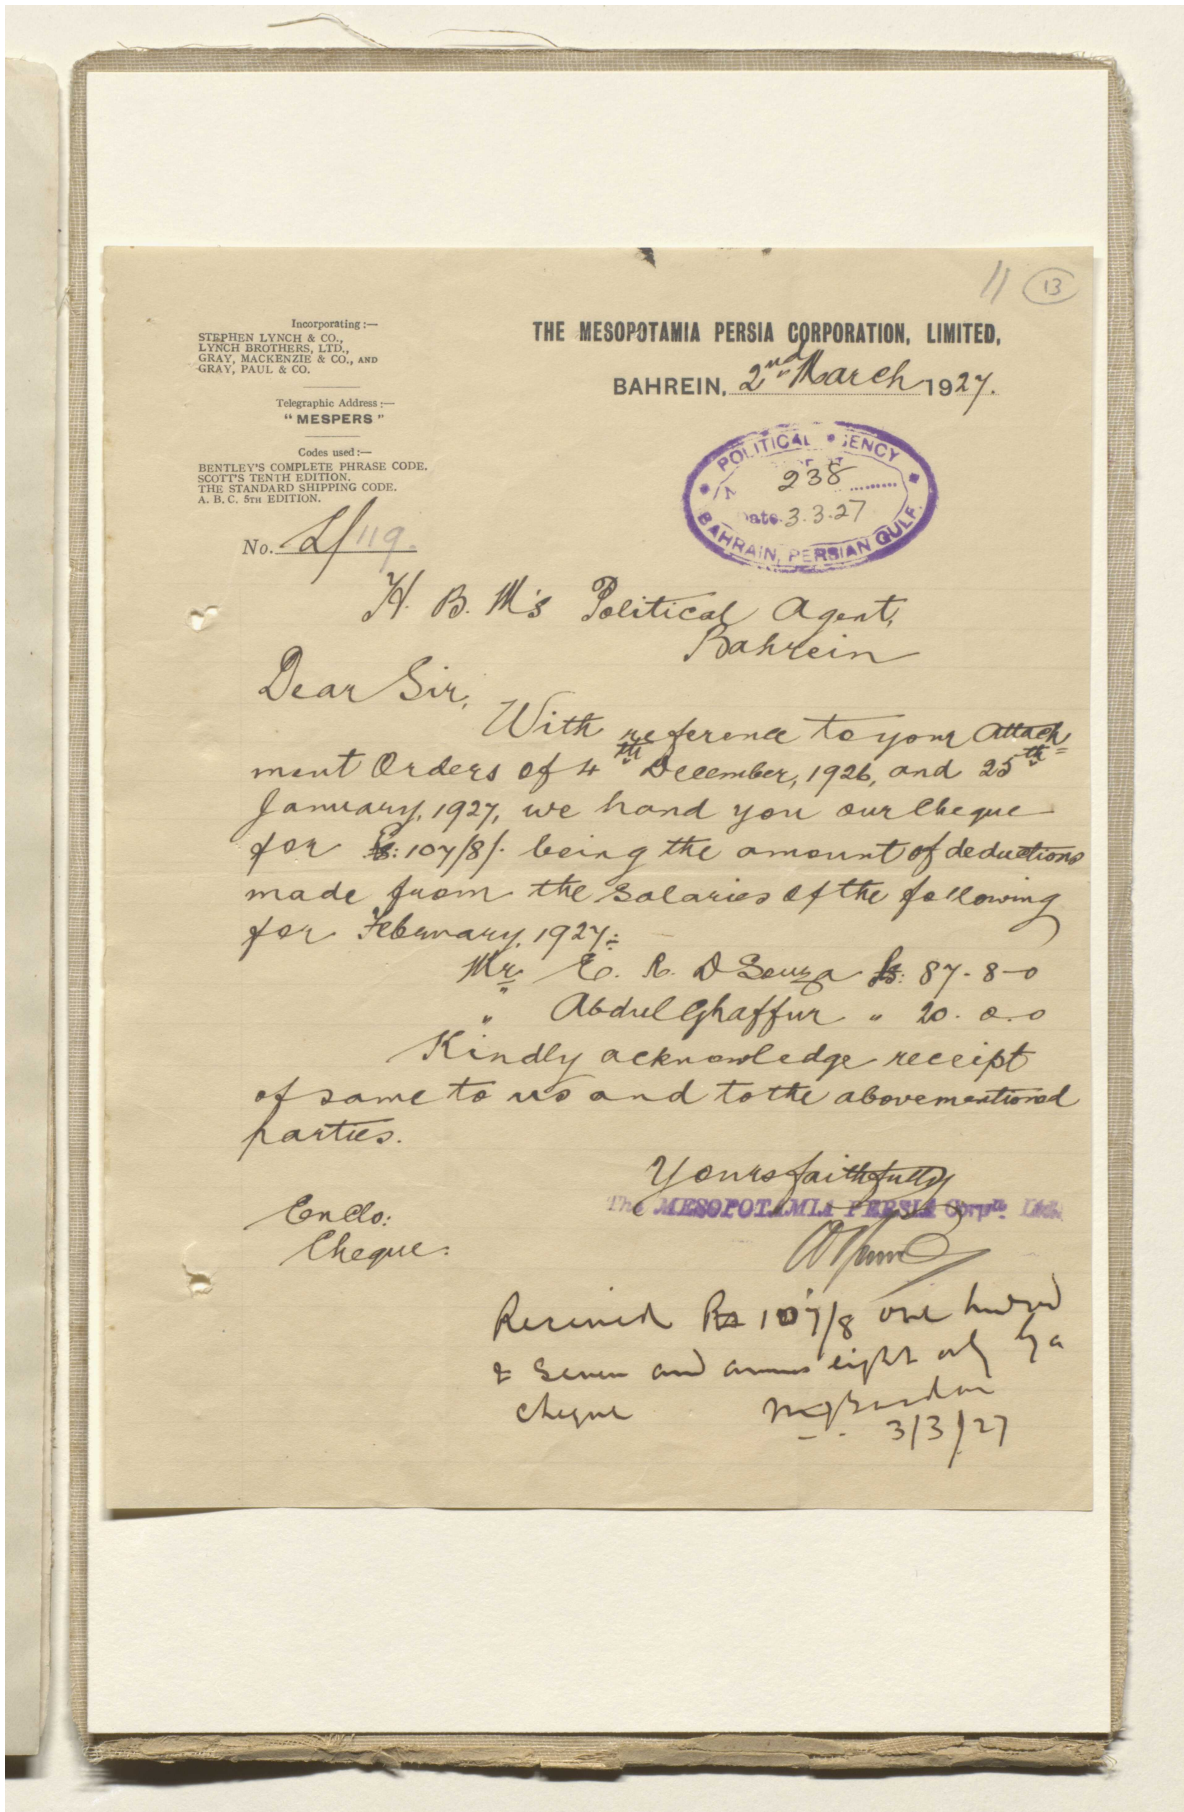 11 13
Incorporating :—
STEPHEN LYNCH & CO.,
LYNCH BROTHERS, LTD.,
GRAY, MACKENZIE & CO., AND
GRAY, PAUL & CO.
Telegraphic Address :—
"MESPERS"
Codes used :—
BENTLEY'S COMPLETE PHRASE CODE.
SCOTT'S TENTH EDITION.
THE STANDARD SHIPPING CODE.
A. B. C. 5TH EDITION.
No. L/119.
THE MESOPOTAMIA PERSIA CORPORATION, LIMITED,
BAHREIN, 2nd March 1927.
POLITICAL AGENCY
238
Date 3.3.27
BAHRAIN, PERSIAN GULF.
H. B. M's Political Agent,
Bahrein
Dear Sir,
With reference to your attach=
ment Orders of 4th December, 1926, and 25th
January, 1927, we hand you our Cheque
for Rs: 107/8/- being the amount of deductions
made from the salaries of the following
for February, 1927:-
Mr. E. R. D Souza Rs: 87-8-0
" Abdul Ghaffur " 20.0.0
Kindly acknowledge receipt
of same to us and to the abovementioned
parties.
Yours faithfully
The MESOPOTAMIA PERSIA Corpn. Ltd.
Enclo:
Cheque:
Received Rs 107/8 one hundred
& seven and annas eight only by a
cheque
3/3/27